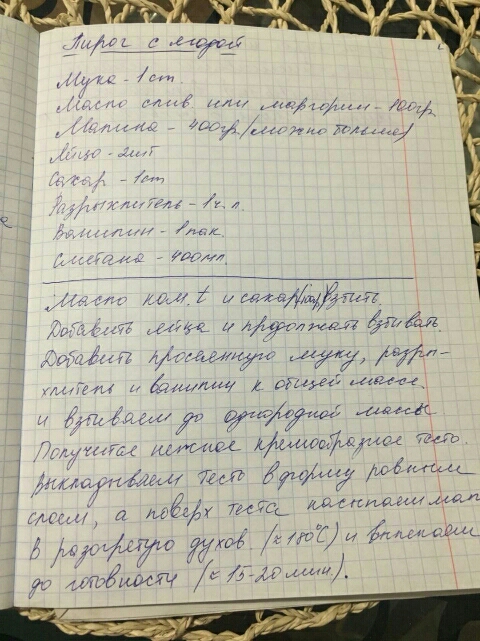 Пирог с ягодой
Мука - 1 ст.
Масло слив. или маргарин - 100гр
Малина - 400гр (можно больше)
Яйцо - 2шт
Сахар - 1ст
Разрыхлитель - 1 ч.л.
Ванилин - 1 пак.
Сметана - 400мл.
Масло ком. t и сахар взбить.
Добавить яйца и продолжать взбивать.
Добавить просеянную муку, разры-
хлитель и ванилин к общей массе
и взбиваем до однородной массы
Получитае нежное кремообразное тесто.
Выкладываем тесто в форму ровным
слоем, а поверх теста насыпаем мал
В разогретую духов. (≈180°С) и выпекаем
до готовности (≈ 15-20 мин.).